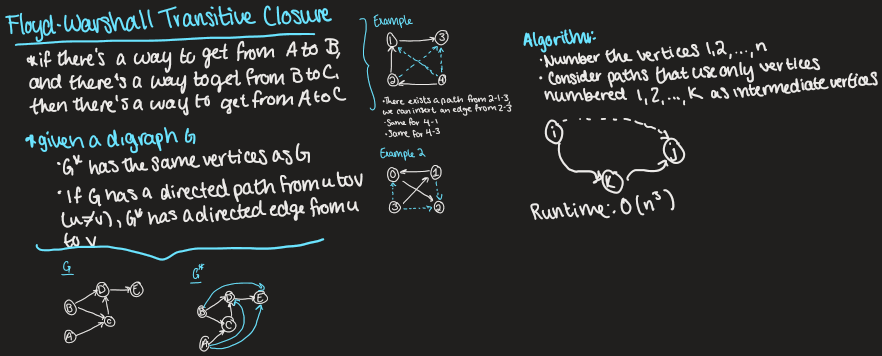 Floyd-Warshall Transitive Closure
*if there's a way to get from A to B,
and there's a way to get from B to C,
then there's a way to get from A to C
*given a digraph G
• G* has the same vertices as G
• If G has a directed path from u to v
(u≠v), G* has a directed edge from u
to v
G
B
D
E
A
C
G*
B
D
E
C
A
Example
1
3
2
4
• There exists a path from 2-1-3,
we can insert an edge from 2-3
- Same for 4-1
• Same for 4-3
Example 2
0
1
3
2
Algorithm:
• Number the vertices 1,2,...,n
• Consider paths that use only vertices
numbered 1,2,...,K as intermediate vertices
i
j
K
Runtime: O(n³)